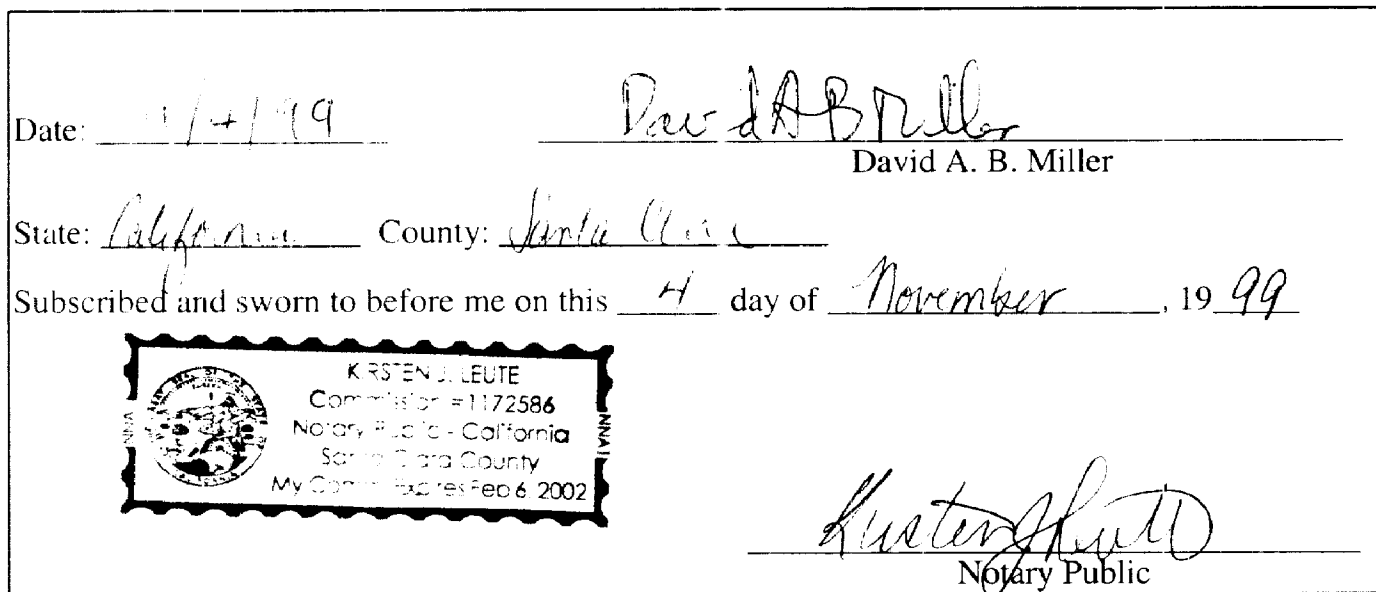 Date: 11/4/99 David A B Miller
David A. B. Miller
State: California County: Santa Clara
Subscribed and sworn to before me on this 4 day of November, 19 99
KIRSTEN J. LEUTE
Commission #1172586
Notary Public - California
Santa Clara County
My Comm. Expires Feb 6, 2002
NNA
NNA
Kirsten J Leute
Notary Public